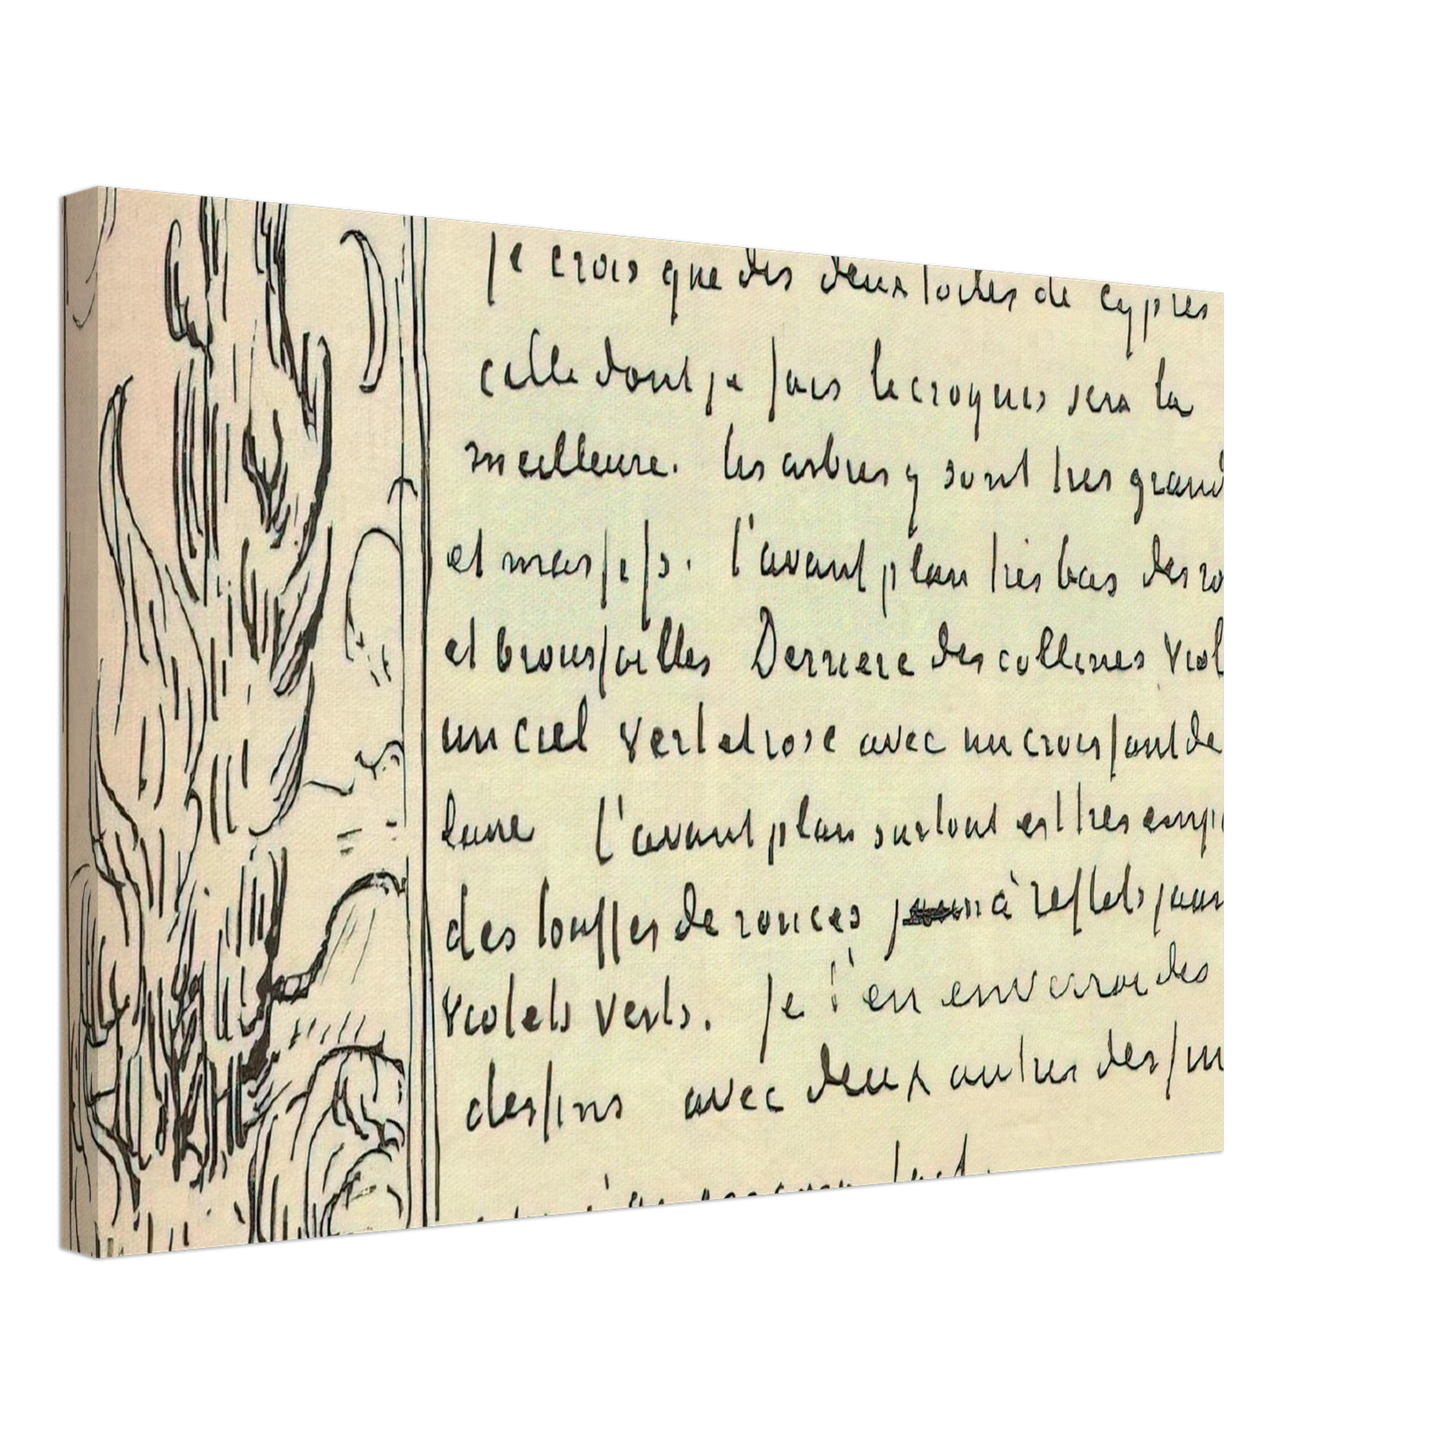 je crois que des deux toiles de cypres
celle dont je fais le croquis sera la
meilleure. les arbres y sont tres grand
et massifs. l'avant plan très bas des ro
et broussailles Derriere des collines viol
un ciel vert et rose avec un croissant de
lune l'avant plan surtout est tres emp
des touffes de ronces à reflets jaun
violets verts. Je t'en enverrai des
dessins avec deux autres dessin